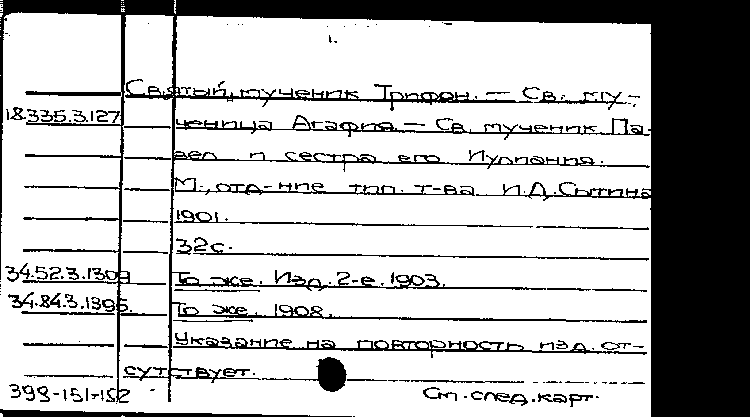 1.
Святый мученик Трифон. — Св. му-
18.335.3.127 ченица Агафия. — Св. мученик Па-
вел и сестра его Иулиания.
М., отд-ние тип. т-ва И.Д. Сытина
1901.
32с.
34.52.3.1309 То же. Изд. 2-е. 1903.
34.84.3.1395. То же. 1908.
Указание на повторность изд. от-
сутствует.
398-151-152 См. след. карт.